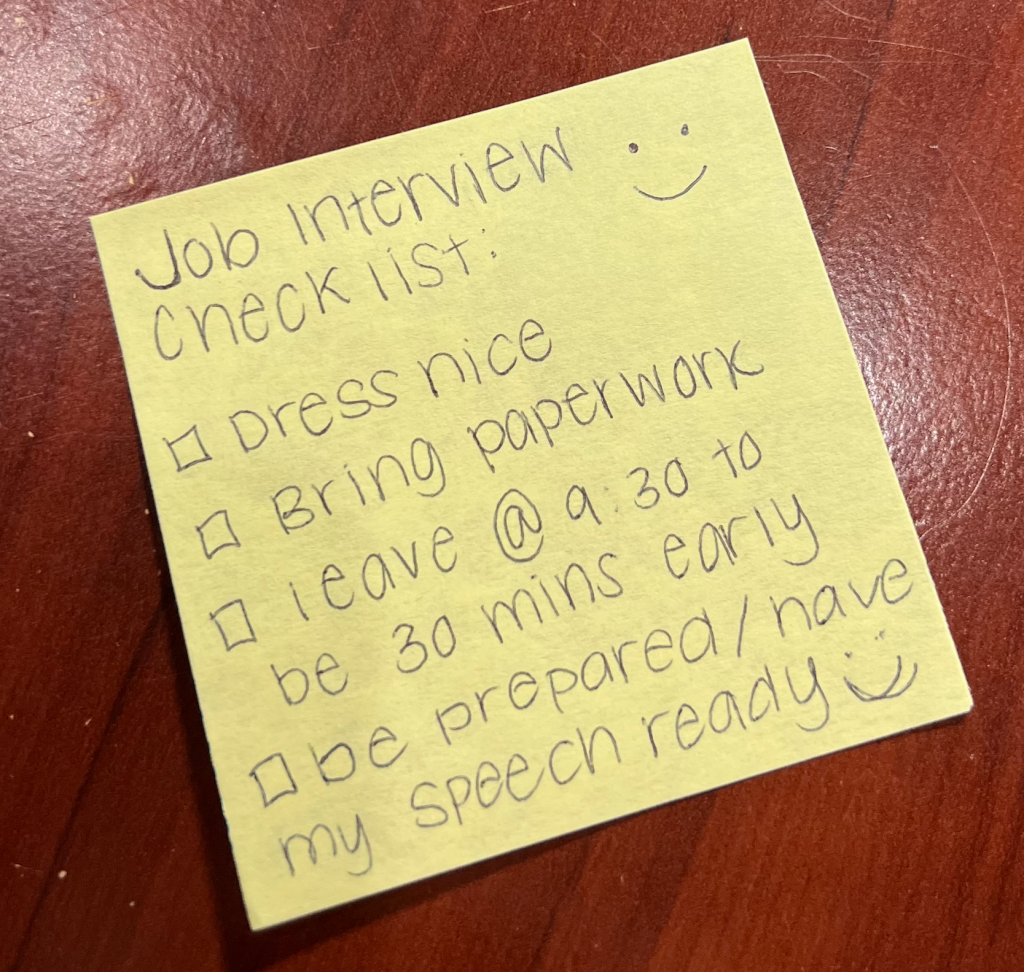 Job Interview
checklist:
Dress nice
Bring paperwork
leave @ 9:30 to
be 30 mins early
be prepared/have
my speech ready